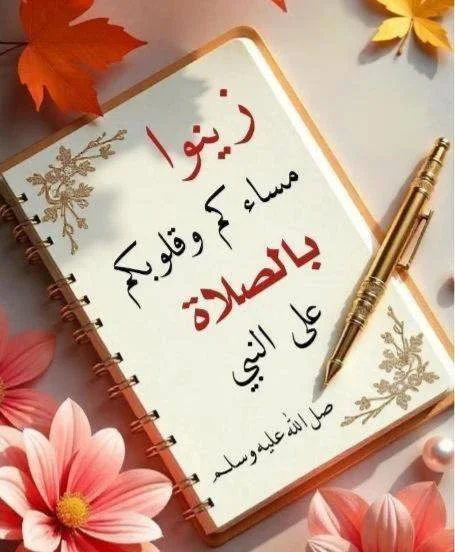 زينوا
مساءكم وقلوبكم
بالصلاة
على النبي
صل الله عليه وسلم